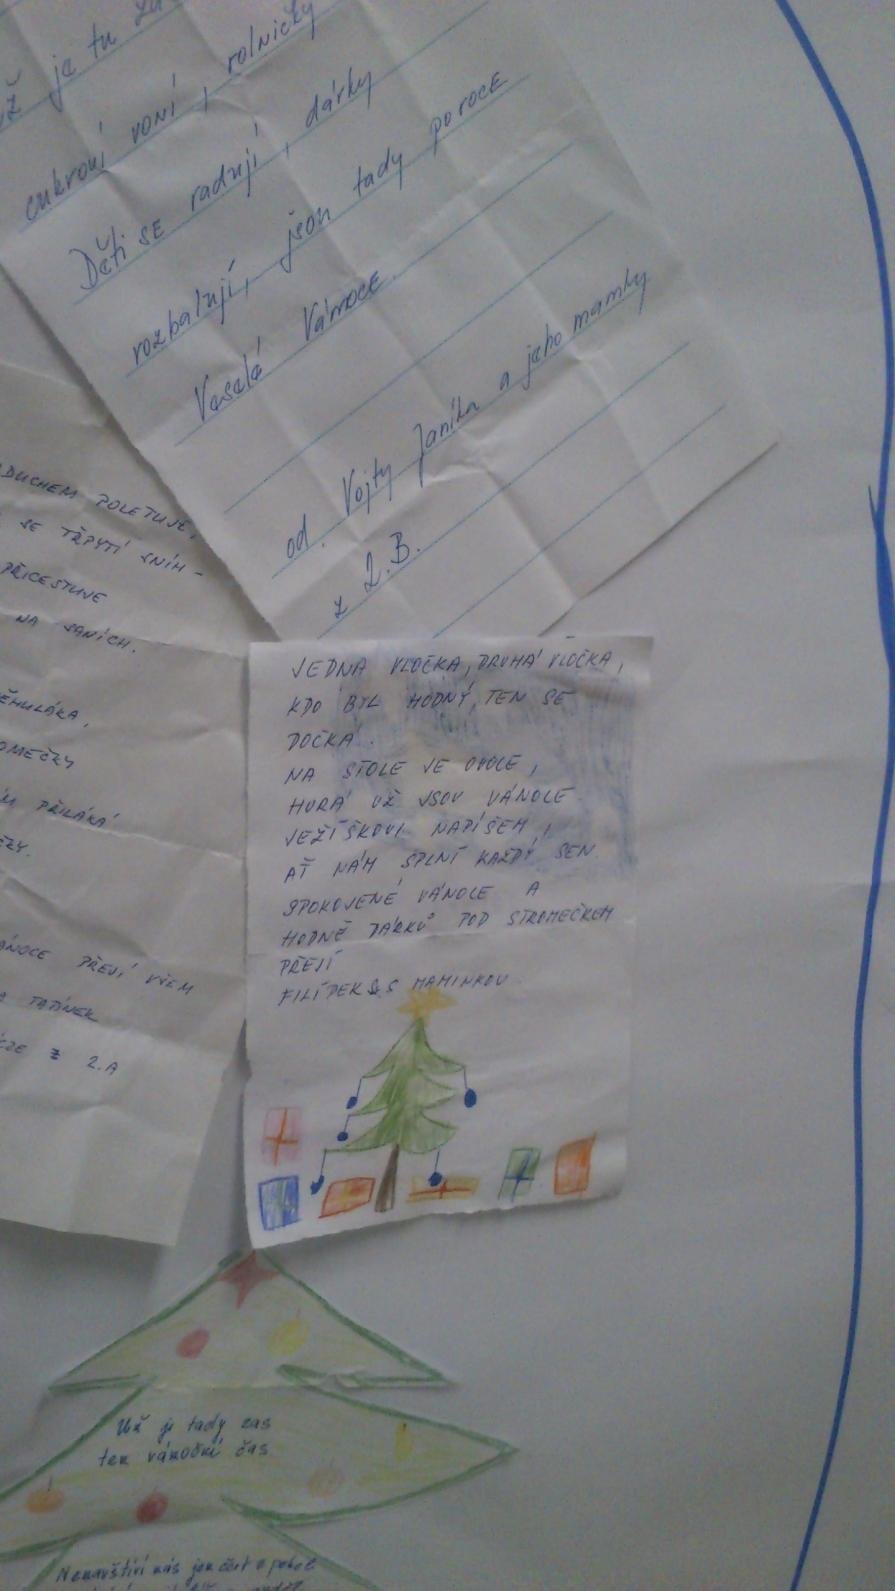 už je tu
cukroví voní, rolničky
Děti se radují, dárky
rozbalují, jsou tady po roce
Veselé Vánoce.
od Vojty Janíka a jeho mamky
z 2.B.
POLETUJE,
SE TŘPYTÍ SNÍH -
PŘICESTUJE
NA SANÍCH.
PŘILÁKÁ
PŘEJÍ VŠEM
A TATÍNEK
Z 2.A
JEDNA VLOČKA, DRUHÁ VLOČKA,
KDO BYL HODNÝ, TEN SE
DOČKÁ.
NA STOLE JE OVOCE,
HURÁ UŽ JSOU VÁNOCE.
JEŽÍŠKOVI NAPÍŠEM,
AŤ NÁM SPLNÍ KAŽDÝ SEN.
SPOKOJENÉ VÁNOCE A
HODNĚ DÁRKŮ POD STROMEČKEM
PŘEJÍ
FILÍPEK S. S MAMINKOU.
Už je tady zas
ten vánoční čas
Nenavštíví nás jen čert a pekel